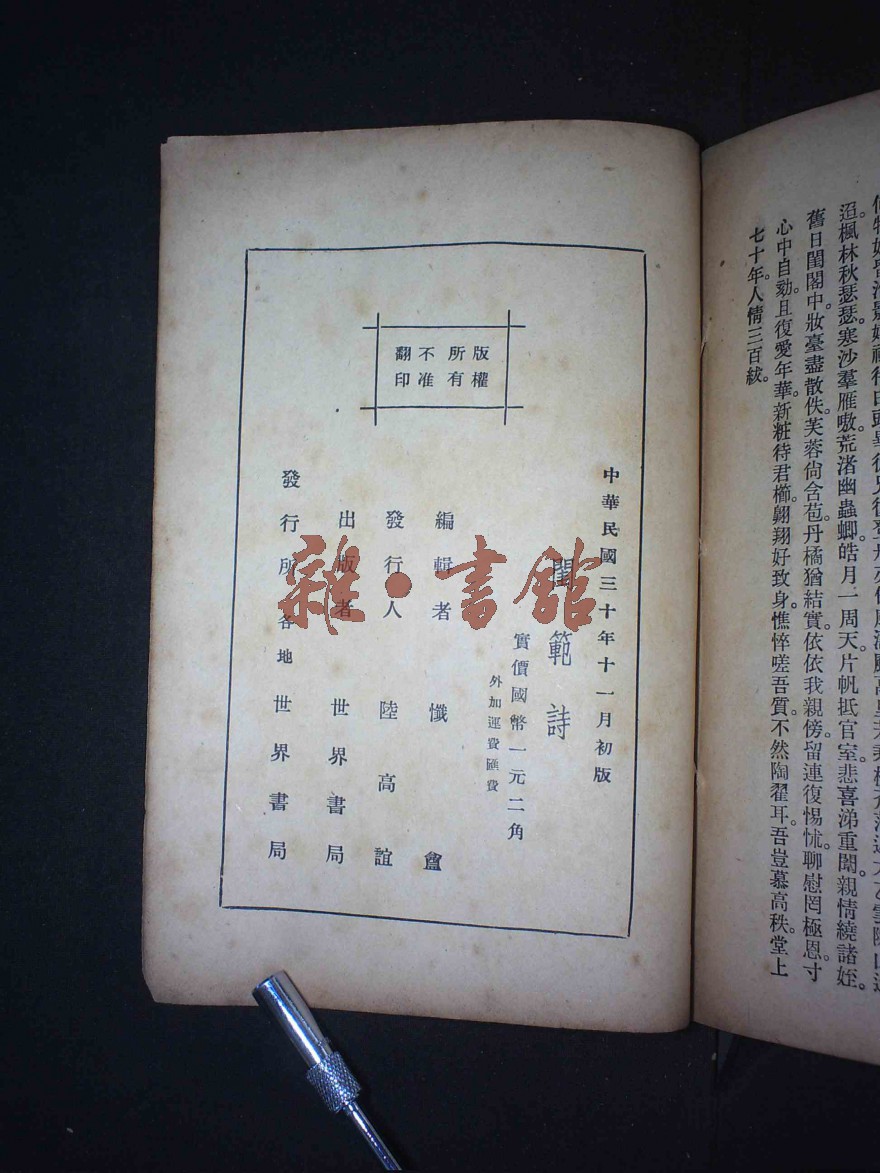 迢。楓林秋瑟瑟。塞沙羣雁嗷。荒渚幽蟲蝍。皓月一周天。片帆抵官室。悲喜涕重闈。親情繞諸姪。
舊日閨閣中。妝臺盡散佚。芙蓉尙含苞。丹橘猶結實。依依我親傍。留連復惕怵。聊慰罔極恩。寸
心中自。且復愛年華。新粧待君櫛。翱翔好致身。憔悴嗟吾質。不然陶翟耳。吾豈慕高秩。堂上
七十年。人情三百紱。
版權
所有
不准
翻印
中華民國三十年十一月初版
閨範詩
實價國幣一元二角
外加運費匯費
編輯者 懺盦
發行人 陸高誼
出版者 世界書局
發行所 各地世界書局
雜·書館